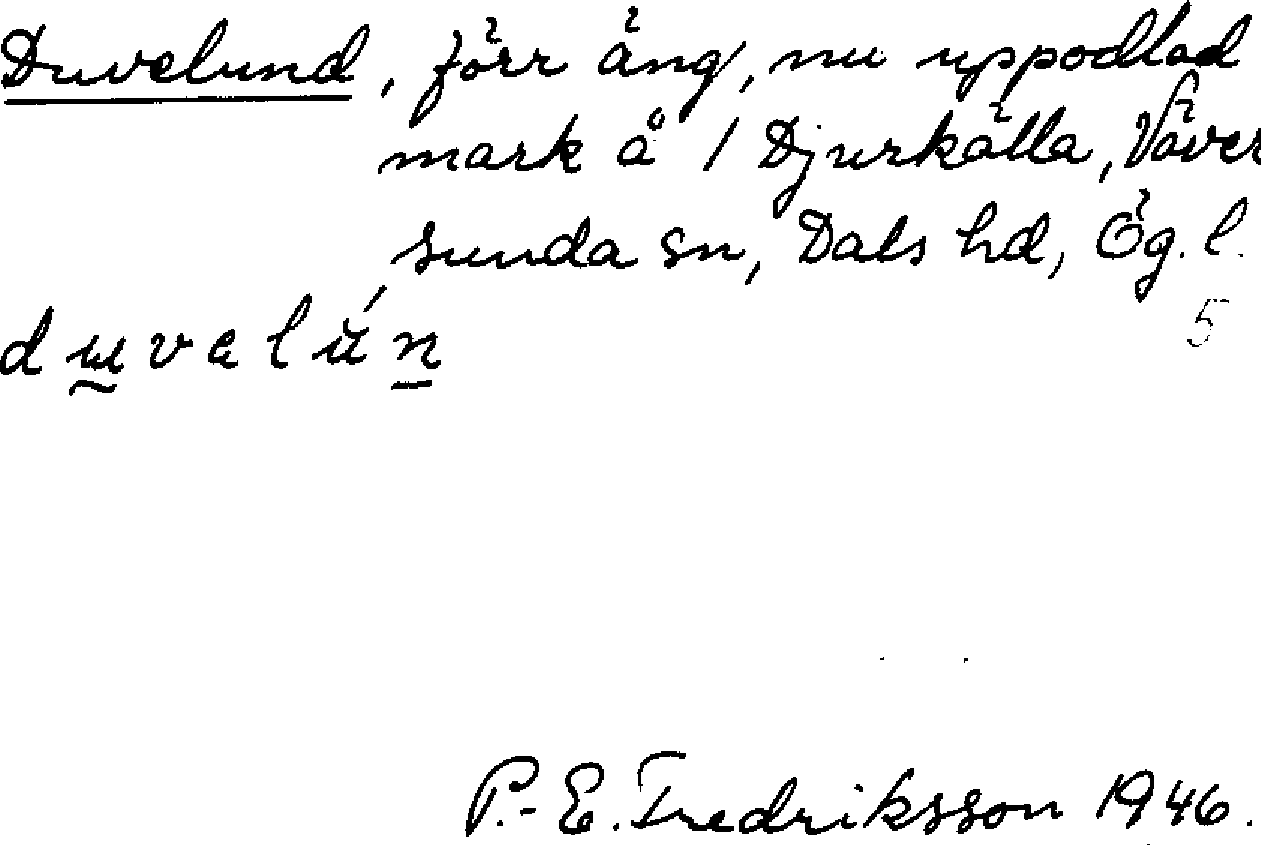 Duvelund, förr äng, nu uppodlad
mark å 1 Djurkälla, Väver
sunda sn, Dals hd, Ög. l.
5
duvelún
P.-E. Fredriksson 1946.